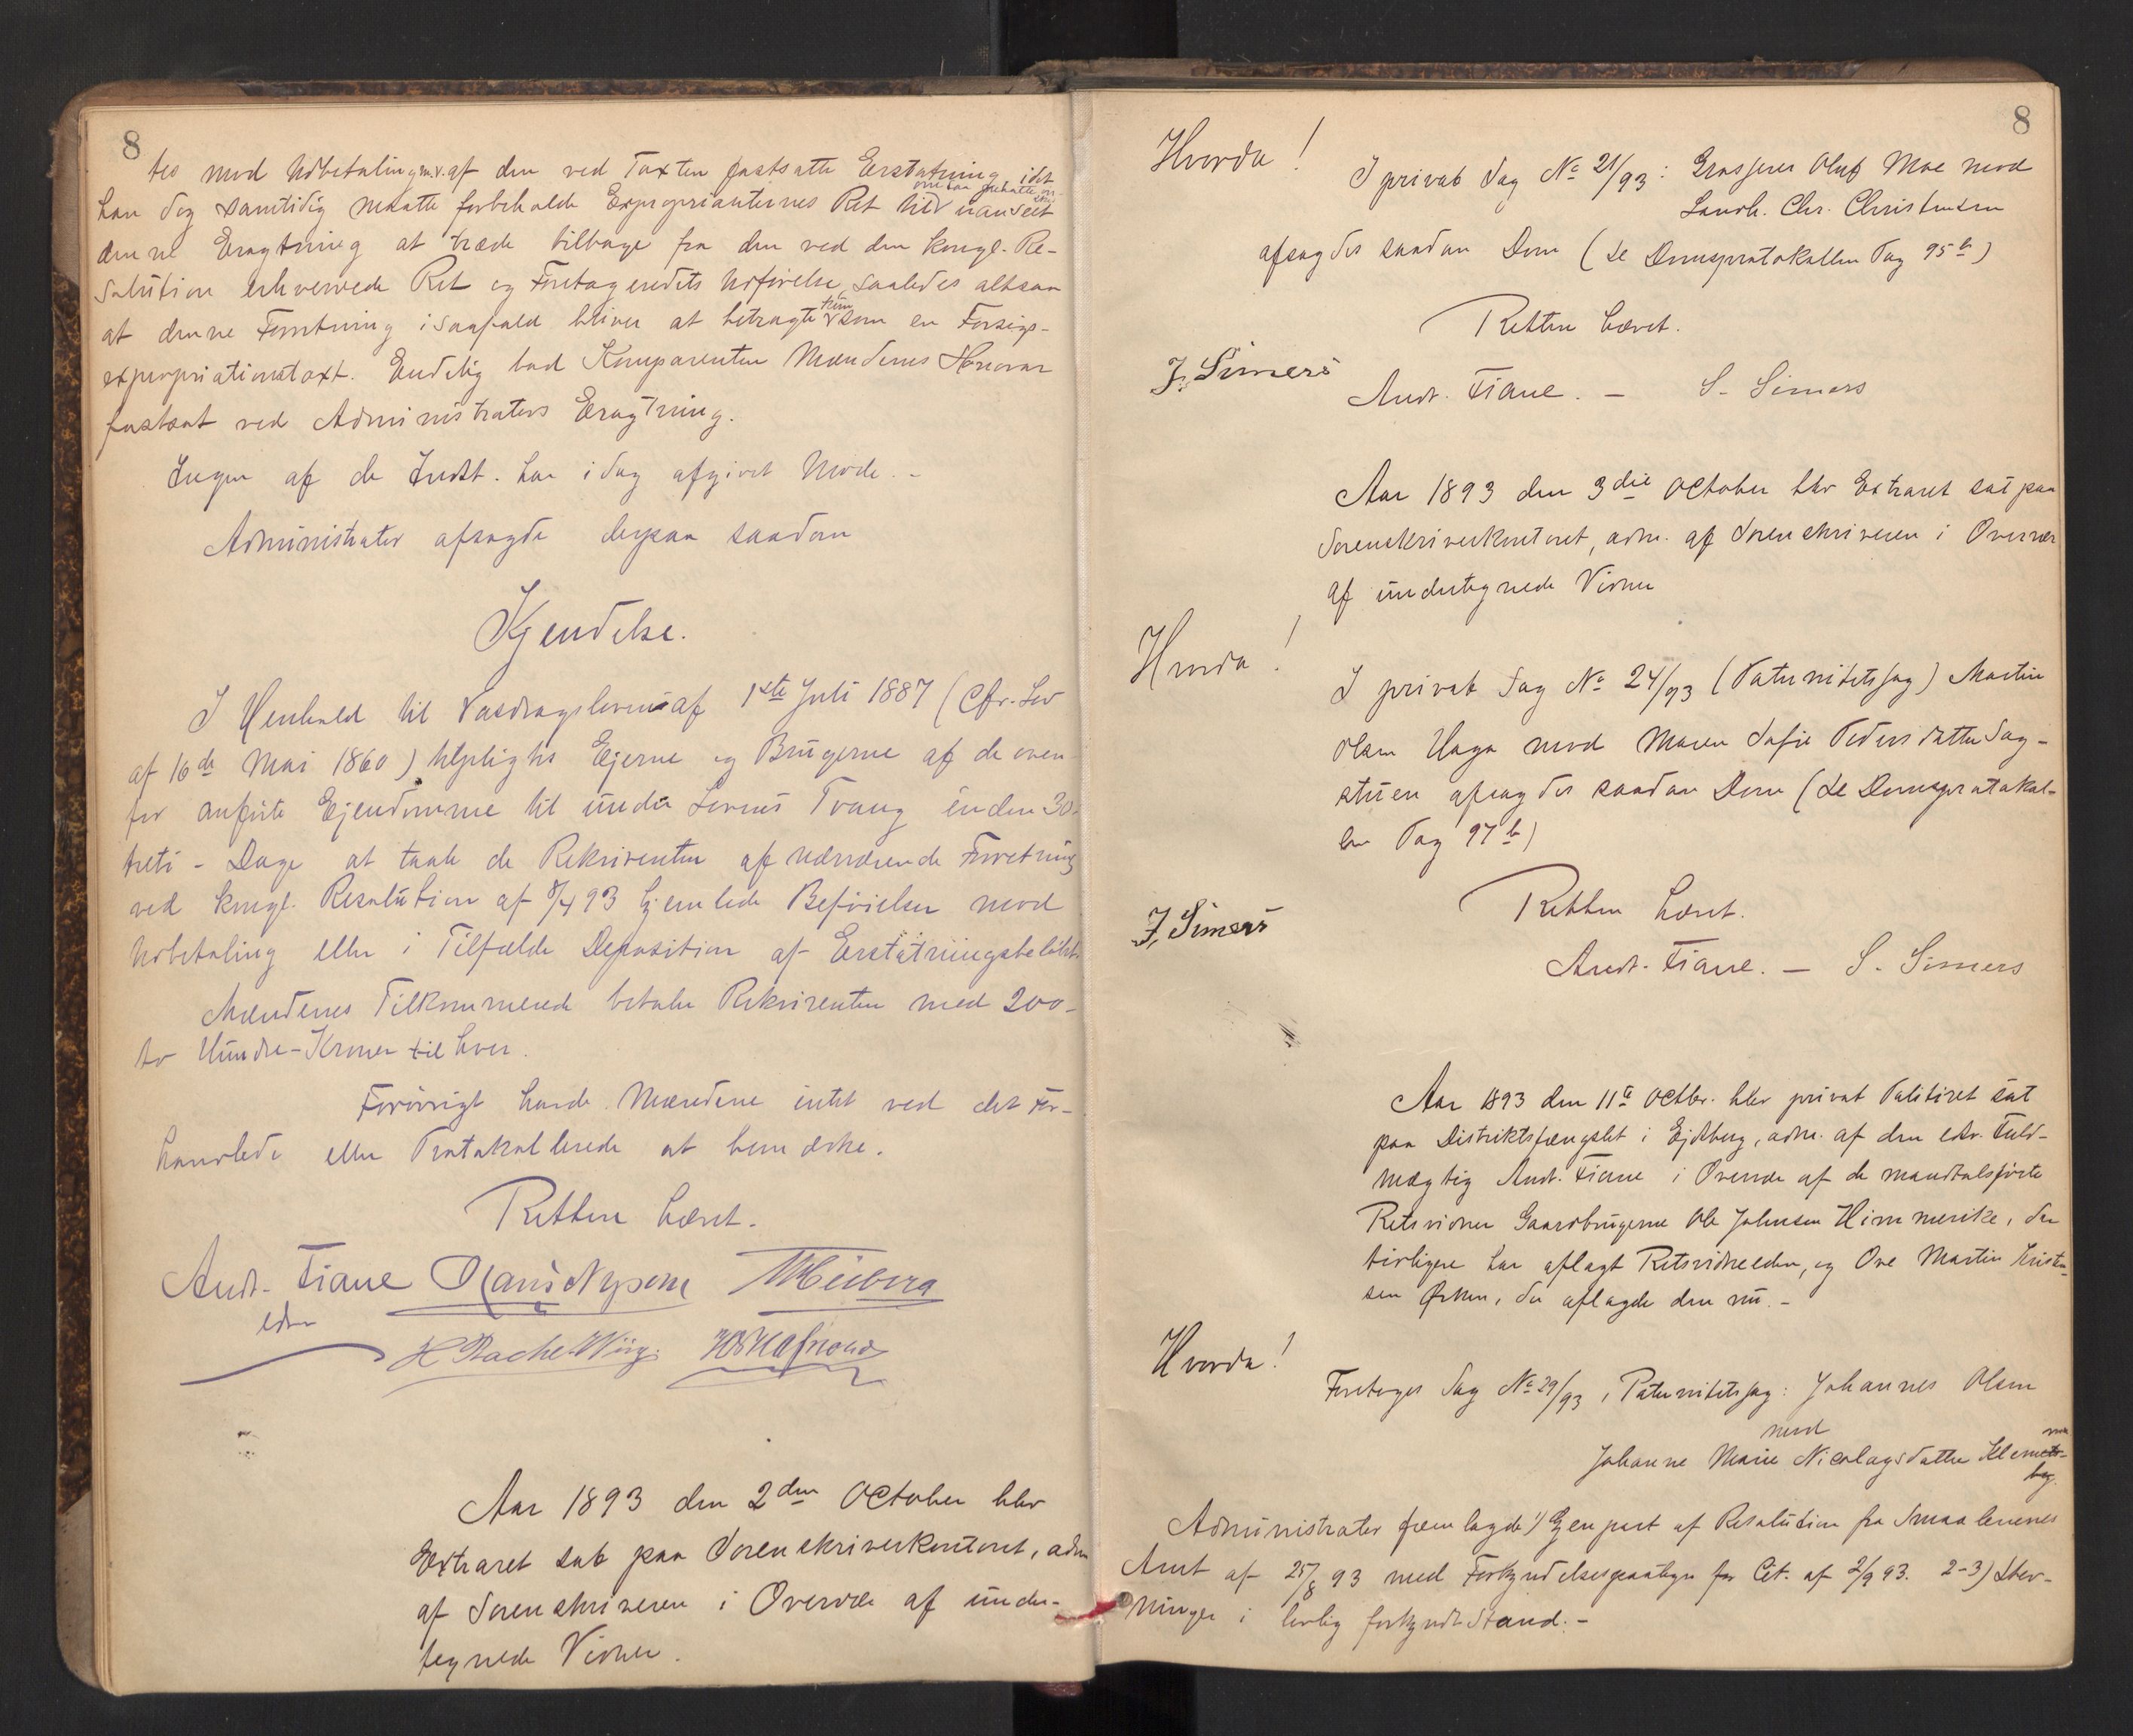 8
tes mod Udbetaling m.v. af den ved Taxten fastsatte Erstatning, idet
han dog samtidig maatte forbeholde Expropriantens Ret til uanseet
denne Eragtning at træde tilbage fra den ved den kongl. Re-
solution erhvervede Ret og Foretagendets Udførelse, saaledes altsaa
at denne Forretning i saafald bliver at betragte kun som en Forsøgs-
expropriationstaxt. Endelig bad Komparenten Mændenes Honorar
fastsat ved Administrators Eragtning.
Ingen af de Indst. har idag afgivet Møde. -
Administrator afsagde derpaa saadan
Kjendelse.
I Henhold til Vasdragsloven af 1ste Juli 1887 (Cfr. Lov
af 16de Mai 1860) tilpligtes Ejerne og Brugerne af de oven-
for anførte Ejendomme til under Lovens Tvang inden 30-
treti - Dage at taale de Rekvirenten af nærværende Forretning
ved kongl. Resolution af 8/4 93 hjemlede Beføielser mod
Udbetaling eller i Tilfælde Deposition af Erstatningsbeløbet.
Mændenes Tilkommende betaler Rekvirenten med 200-
to Hundre-Kroner til hver.
Forøvrigt havde Mændene intet ved det For-
handlede eller Protokollerede at bemærke.
Retten hævet.
Andr. Fiane
edsv.
H. Bache Wiig.
Aar 1893 den 2den October blev
Extraret sat paa Sorenskriverkontoret, adm
af Sorenskriveren i Overvær af under-
tegnede Vidner.
8
Hvorda!
I privat Sag No 21/93: Grosserer Oluf Moe mod
Landh. Chr. Christensen
afsagdes saadan Dom (se Domsprotokollen Pag 95 b)
Retten hævet.
J. Simers
Andr. Fiane. - S. Simers
Aar 1893 den 3die October blev Extraret sat paa
Sorenskriverkontoret, adm. af Sorenskriveren i Overvær
af undertegnede Vidner
Hvorda!
I privat Sag No 24/93 (Paternitetssag) Martin
Olsen Haga mod Maren Sofie Pedersdatter Sag-
stuen afsagdes saadan Dom (se Domsprotokol-
len Pag 97 b)
Retten hævet.
J. Simers
Andr. Fiane. - S. Simers
Aar 1893 den 11te Octbr. blev privat Politiret sat
paa Distriktsfængslet i Ejdsberg, adm. af den edsv. Fuld-
mægtig Andr. Fiane i Overvær af de mandtalsførte
Retsvidner Gaardbrugerne Ole Johnsen Himmerike, der
tidligere har aflagt Retsvidneeden, og Ove Martin Kristen-
sen Ørken, der aflagde den nu. -
Hvorda!
Foretoges Sag No 29/93, Paternitetssag: Johannes Olsen
mod
Johanne Marie Nicolaysdatter Klemets-
Administrator fremlagde 1) Gjenpart af Resolution fra Smaalenenes
Amt af 25/8 93 med Forkyndelsespaategn. for Cit. af 2/9 93. 2-3) Stev-
ninger i lovlig forkyndt Stand. -